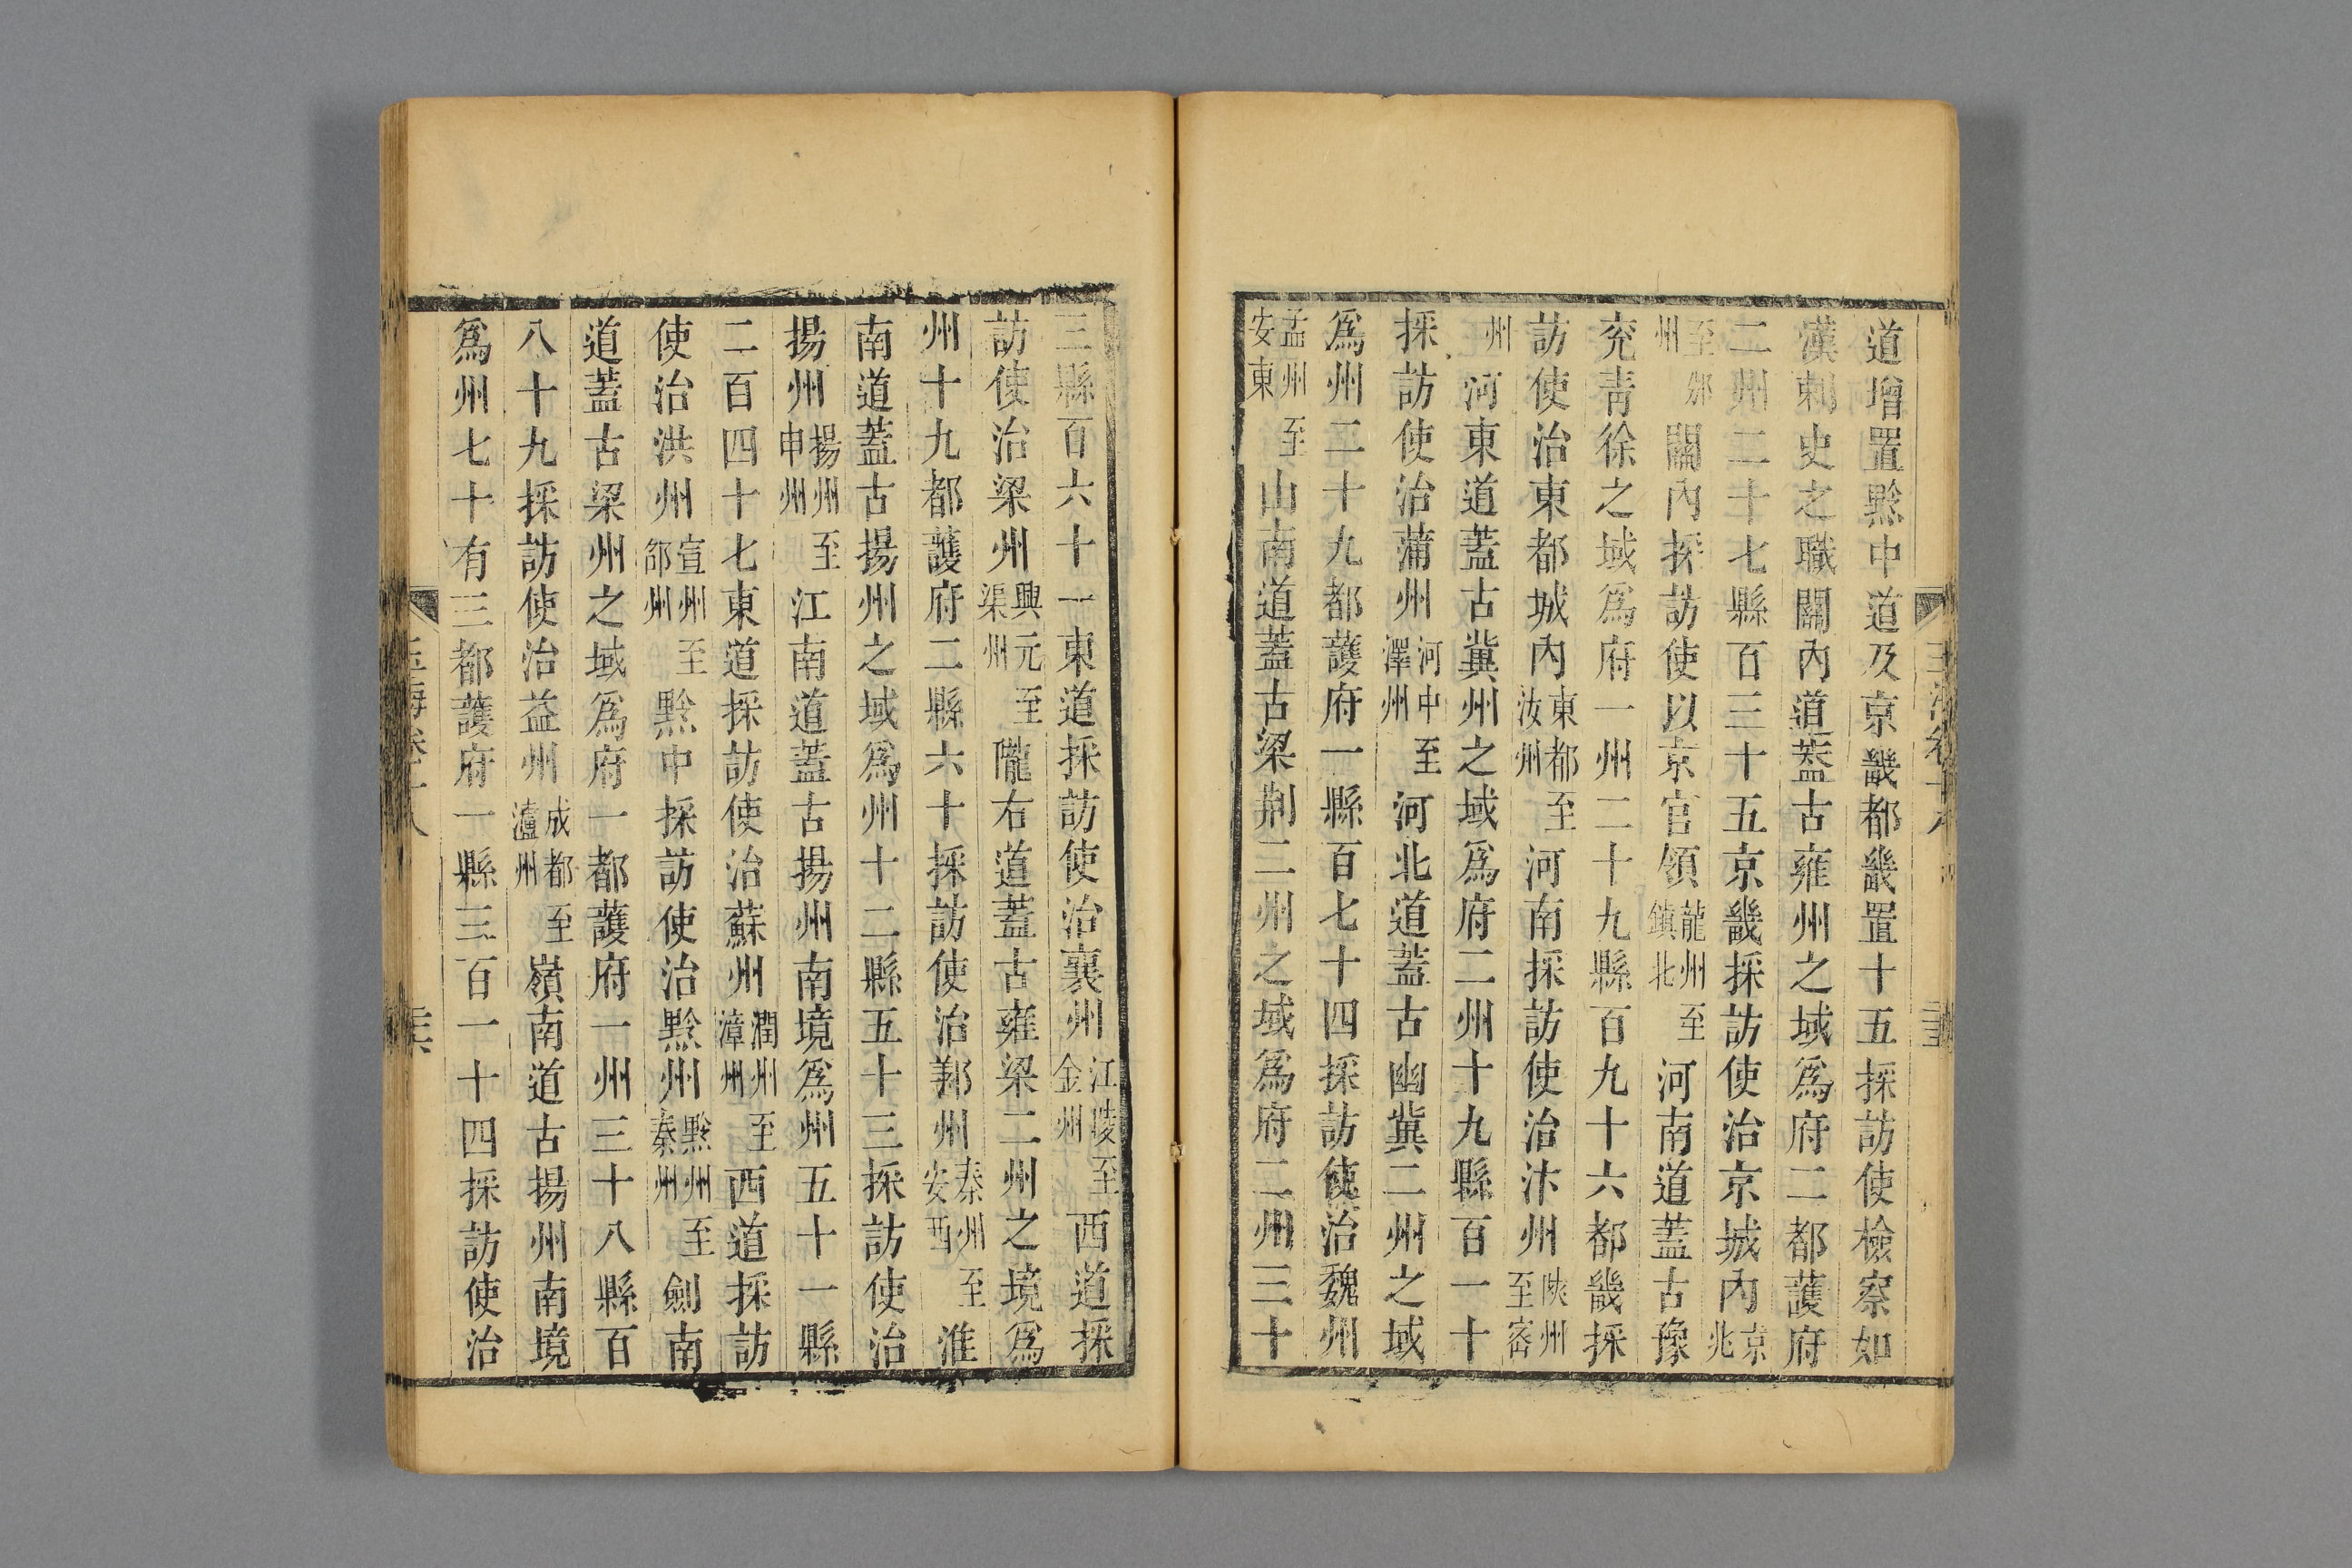 道增置黔中道及京畿都畿置十五採訪使檢察如
漢刺史之職關內道蓋古雍州之域爲府二都護府
二州二十七縣百三十五京畿採訪使治京城內京兆
至邠州關內採訪使以京官領龍州至鎮北河南道蓋古豫
兗青徐之域爲府一州二十九縣百九十六都畿採
訪使治東都城內東都至汝州河南採訪使治汴州陜州至密
州河東道蓋古冀州之域爲府二州十九縣百一十
採訪使治蒲州河中至澤州河北道蓋古幽冀二州之域
爲州二十九都護府一縣百七十四採訪使治魏州
孟州至安東山南道蓋古梁荆二州之域爲府二州三十
三縣百六十一東道採訪使治襄州江陵至金州西道採
訪使治梁州興元至渠州隴右道蓋古雍梁二州之境爲
州十九都護府二縣六十採訪使治鄯州秦州至安西淮
南道蓋古揚州之域爲州十二縣五十三採訪使治
揚州揚州至申州江南道蓋古揚州南境爲州五十一縣
二百四十七東道採訪使治蘇州潤州至漳州西道採訪
使治洪州宣州至邵州黔中採訪使治黔州黔州至溱州劍南
道蓋古梁州之域爲府一都護府一州三十八縣百
八十九採訪使治益州成都至瀘州嶺南道古揚州南境
爲州七十有三都護府一縣三百一十四採訪使治
玉海卷十八